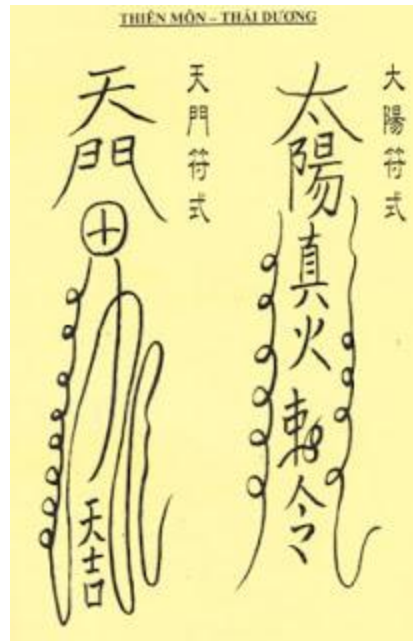 THIÊN MÔN – THÁI DƯƠNG
大陽符式
太陽真火勅令
天門符式
天門
十
天吉